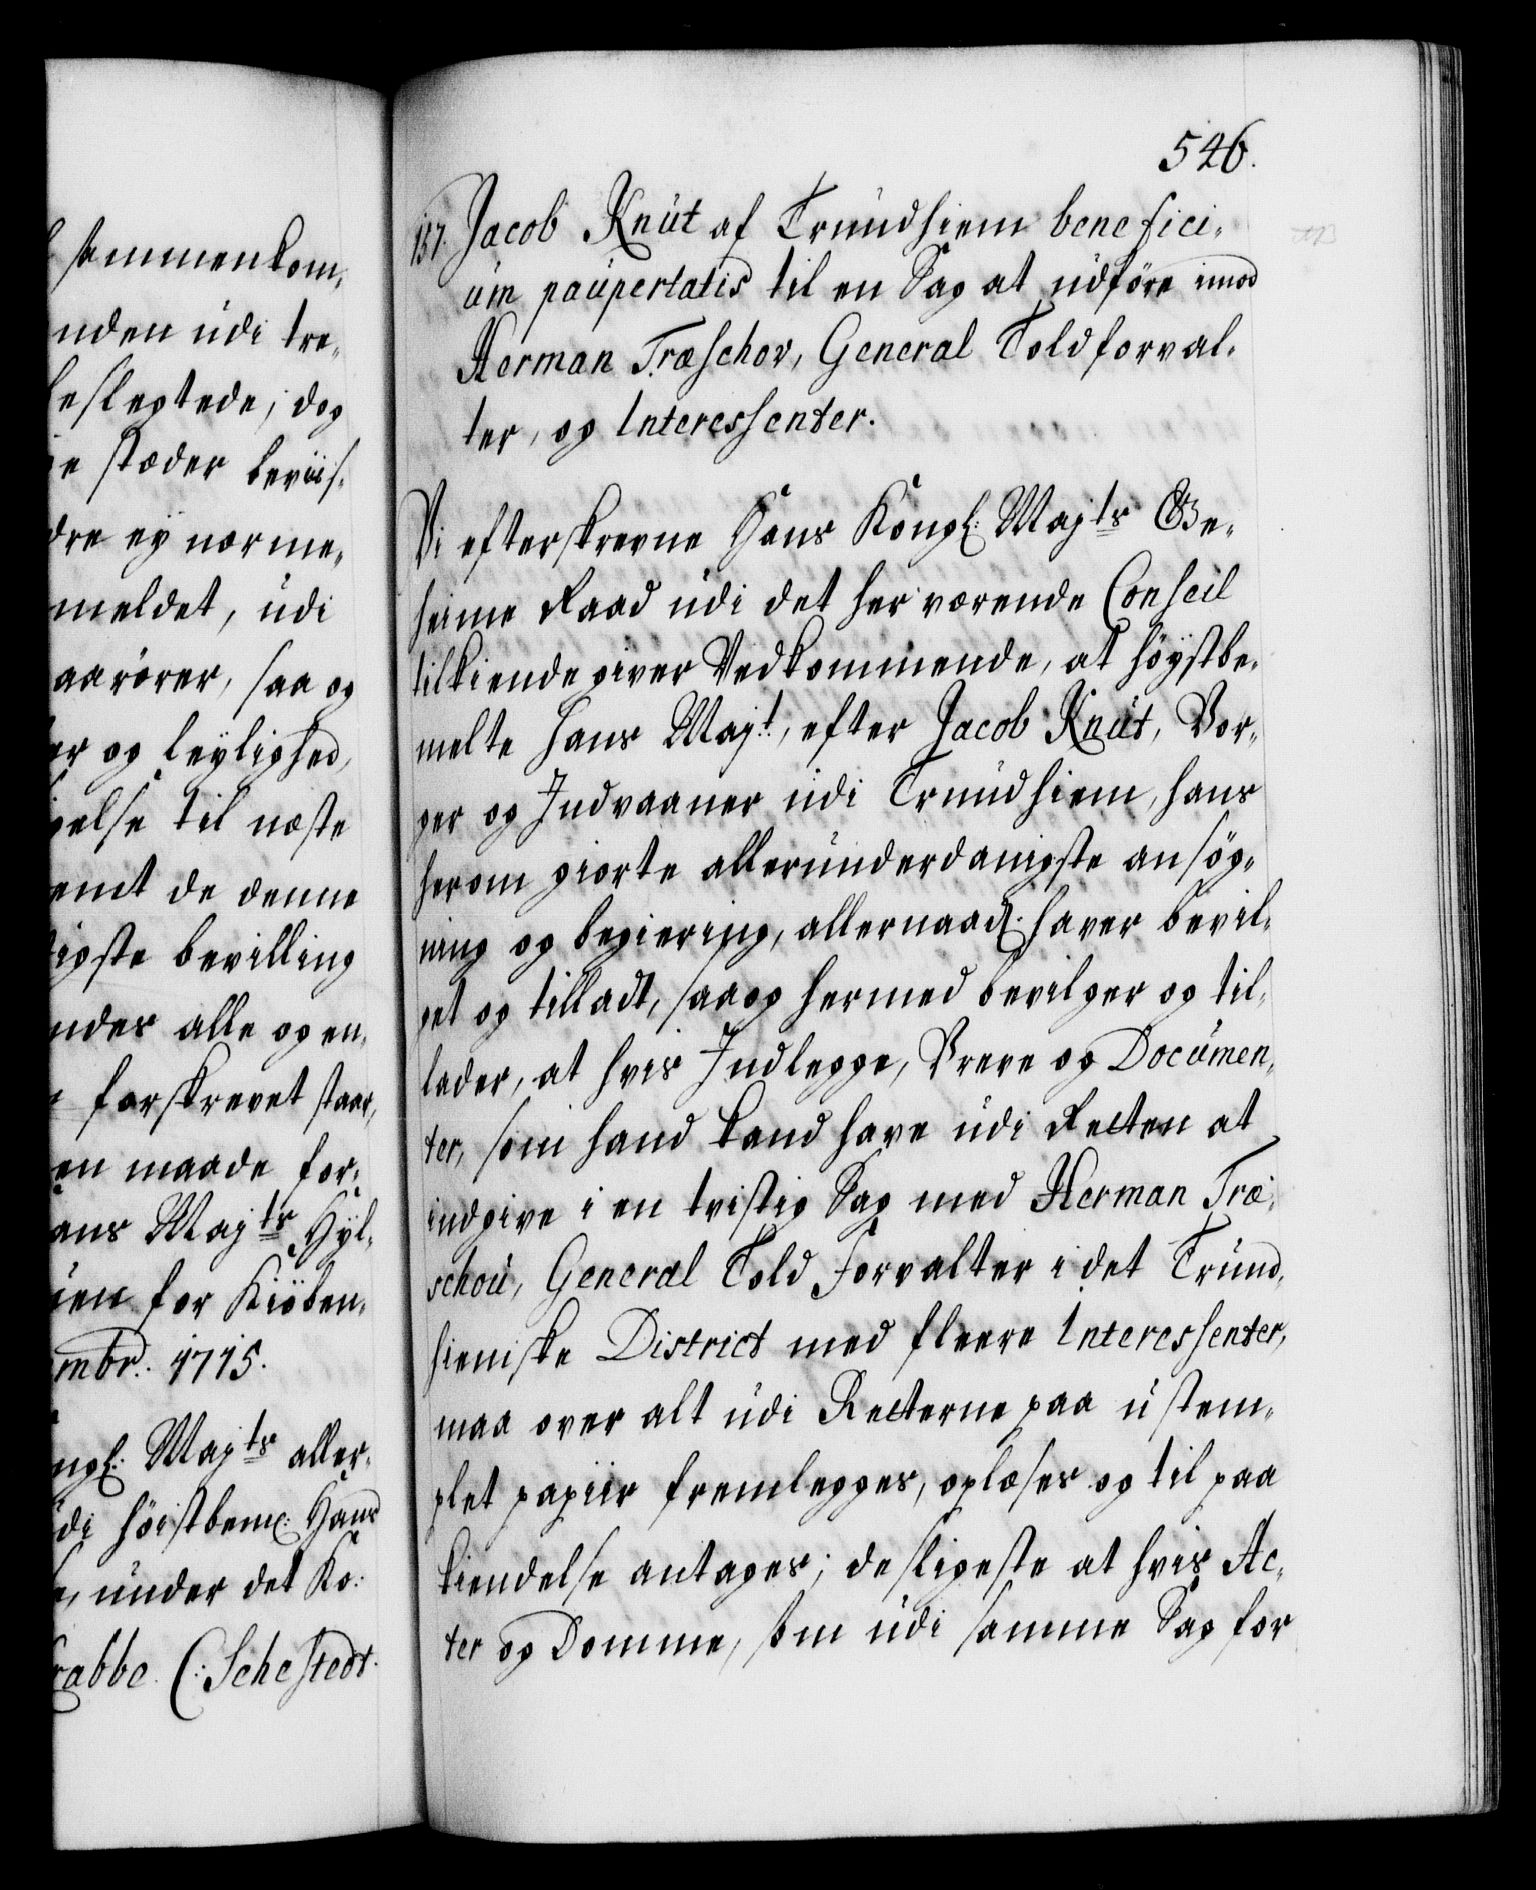 sammenkom¬
nden udi tre¬
beslegtede; dog
e stæder beviis¬
dre ey nærme¬
meldet, udi
aarører, saa og
er og leylighed,
gelse til næste
emt de denne
igste bevilling
ndes alle og en¬
forskrevet staar,
en maade for¬
ans Majts Hyl¬
ien for Kiöben¬
mbr. 1715.
ngl: Majts aller¬
di höistbem: Hans
e, under det Ko:
rabbe. C: Sehestedt.
546.
137. Jacob Knut af Trundhiem benefici¬
um paupertatis til en Sag at udföre imod
Herman Træschov, General Toldforval¬
ter, og Interessenter.
Vi efterskrevne Hans Kongl: Majts Ge¬
heime Raad udi det her værende Conseil
tilkiendegiver Vedkommende, at höystbe¬
melte Hans Majt, efter Jacob Knut, Bor¬
ger og Indvaaner udi Trundhiem, hans
herom giorte allerunderdanigste ansög¬
ning og begiering, allernaad: haver bevil¬
get og tilladt, saa og hermed bevilger og til¬
lader, at hvis Indlegge, Breve og Documen¬
ter, som hand kand have udi Retten at
indgive i en tvistig Sag med Herman Træ¬
schou, General Told Forvalter i det Trund¬
hiemske District med fleere Interessenter,
maa over alt udi Retterne paa ustem¬
plet papiir fremlegges, oplæses og til paa
kiendelse antages; desligeste at hvis Ac¬
ter og Domme, som udi samme Sag for